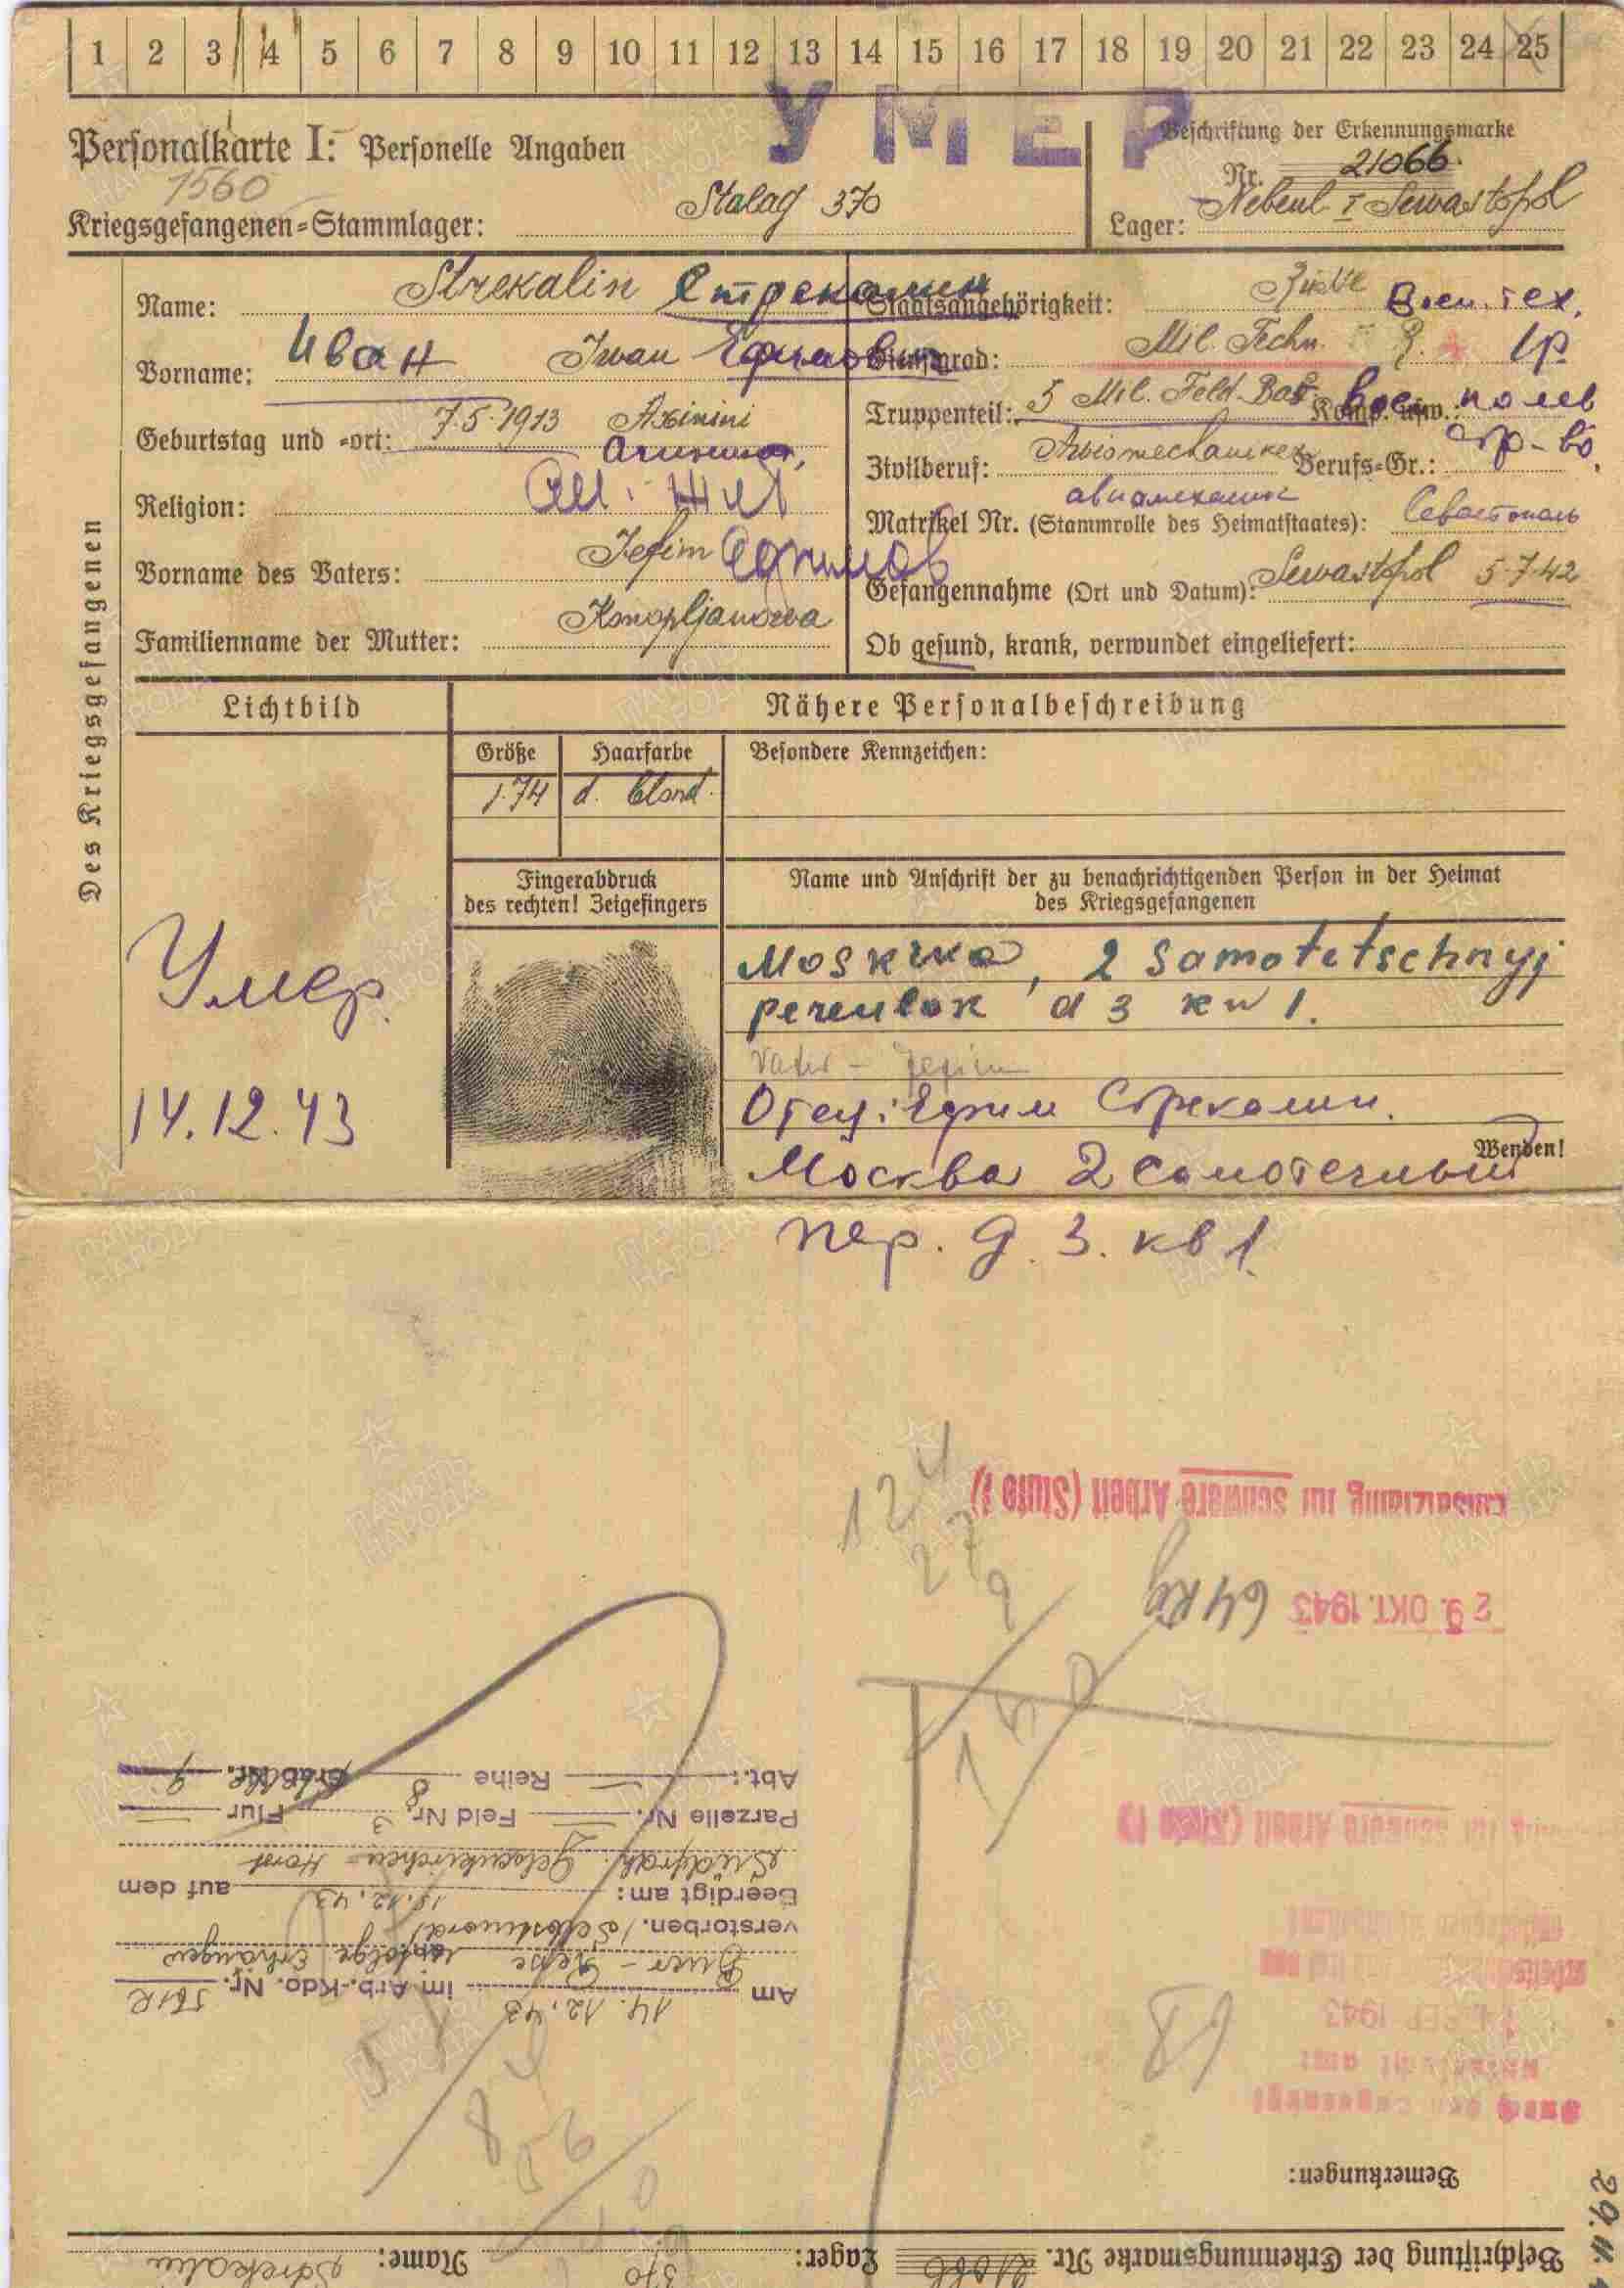 1 2 3 4 5 6 7 8 9 10 11 12 13 14 15 16 17 18 19 20 21 22 23 24 25
УМЕР
Personalkarte I: Personelle Angaben
1560
Kriegsgefangenen-Stammlager: Stalag 370
Beschriftung der Erkennungsmarke
Nr. 21066.
Lager: Nebenl. I Sewastopol
Des Kriegsgefangenen
Name: Strekalin Стрекалин
Vorname: Иван Iwan Ефимович
Geburtstag und -ort: 7.5.1913 Axinini
Religion:
Vorname des Vaters: Jefim Ефимов
Familienname der Mutter: Konopljanowa
Staatsangehörigkeit: Russe Воен. тех.
Dienstgrad: Mil. Techn. 1р
Truppenteil: 5 Mil. Feld. Komp. usw.: Воен полев
стр-во,
Zivilberuf: Awiomechaniker Berufs-Gr.:
авиамеханик
Matrikel Nr. (Stammrolle des Heimatstaates): Севастополь
Gefangennahme (Ort und Datum): Sewastopol 5.7.42
Ob gesund, krank, verwundet eingeliefert:
Lichtbild
Nähere Personalbeschreibung
Größe Haarfarbe Besondere Kennzeichen:
1.74 d. blond.
Fingerabdruck
des rechten! Zeigefingers
Name und Anschrift der zu benachrichtigenden Person in der Heimat
des Kriegsgefangenen
Умер.
14.12.43
Moskwa, 2 Samotetschnyj
pereulok d 3 kw 1.
Vater - Jefim
Отец: Ефим Стрекалин.
Wenden!
Москва 2 Самотечный
пер. д. 3. кв 1.
Beschriftung der Erkennungsmarke Nr. 21066 Lager: 370 Name: Strekalin
Bemerkungen:
29.11.
SEP 1943
29. OKT. 1943 64 kg
für schwere Arbeit (Stufe 1)
für schwere Arbeit (Stufe 1)
Am 14.12.43 im Arb.-Kdo. Nr. 561R
Buer - Resse infolge Erhängen
verstorben. (Selbstmord)
Beerdigt am: 15.12.43 auf dem
Südfrdh. Gelsenkirchen - Horst
Parzelle Nr. Feld Nr. 3 Flur
Abt.: Reihe 8 Grab Nr. 9